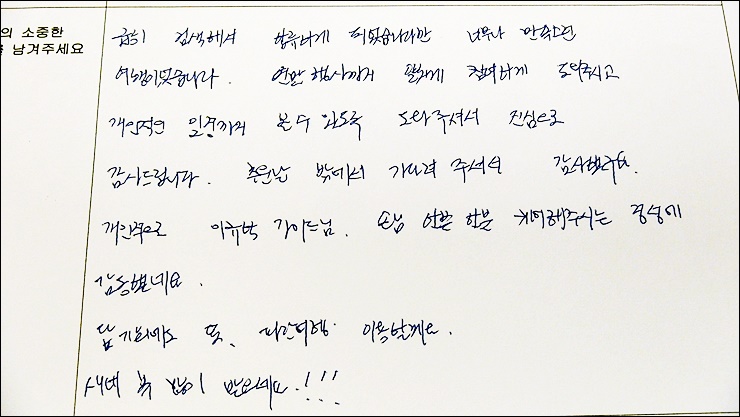 의 소중한
남겨주세요
급히 검색해서 합류하게 되었습니다만 너무나 만족스런
여행이었습니다. 연말 행사까지 참여하게 도와주시고
개인적인 일정까지 볼 수 있도록 도와주셔서 진심으로
감사드립니다. 추운날 밖에서 기다려 주셔서 감사했구요.
개인적으로 가이드님. 손님 한분 한분 케어해주시는 정성에
감동했네요.
담 기회에도 또, 이용할께요.
새해 복 많이 받으세요.!!!